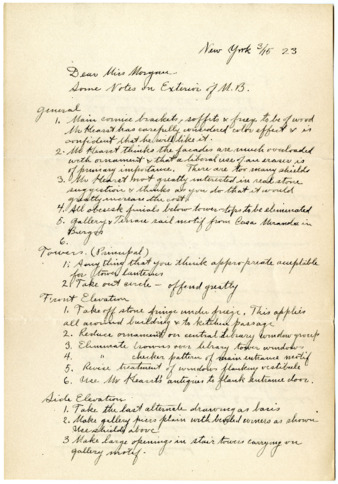 New York 3/15 23
Dear Miss Morgan
Some Notes on Exterior of M.B.
General
1. Main cornice brackets, soffits & frieze to be of wood
Mr Hearst has carefully considered color effect & is
confident that he will like it.
2. Mr Hearst thinks the facades are much overloaded
with ornament & that a liberal use of an eraser is
of primary importance. There are too many shields
3. Mr Hearst not greatly interested in real stone
suggestion & thinks as you do that it would
greatly increase the cost
4. All obelisk finials below tower tops to be eliminated
5. Gallery & Terrace rail motif from Casa Miranda in
Burgos
6.
Towers. (Principal)
1. Anything that you think appropriate acceptible
for tower lanterns
2. Take out circle — offend greatly
Front Elevation
1. Take off stone fringe under frieze. This applies
all around building & to kitchen passage
2. Reduce ornament on central library window group
3. Eliminate crowns over library tower windows
4. " checker pattern of main entrance motif
5. Revise treatment of windows flanking vestibule
6. Use Mr Hearst's antiques to flank entrance door.
Side Elevation
1. Take the last alternate drawing as basis
2. Make gallery piers plain with corners as shown
Use shields above
3 Make large openings in stair towers carrying on
gallery motif.